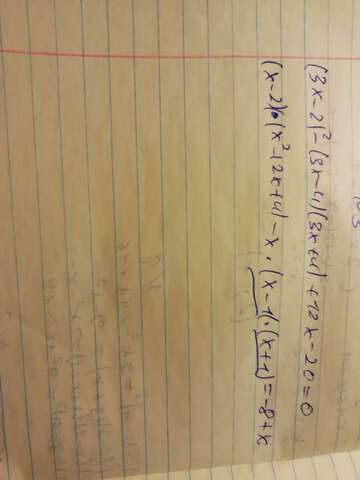 (3x-2)²-(3x-4)(3x+4)+12x-20=0
(x-2)•(x²+2x+4)-x·(x-1)·(x+1)=-8+x